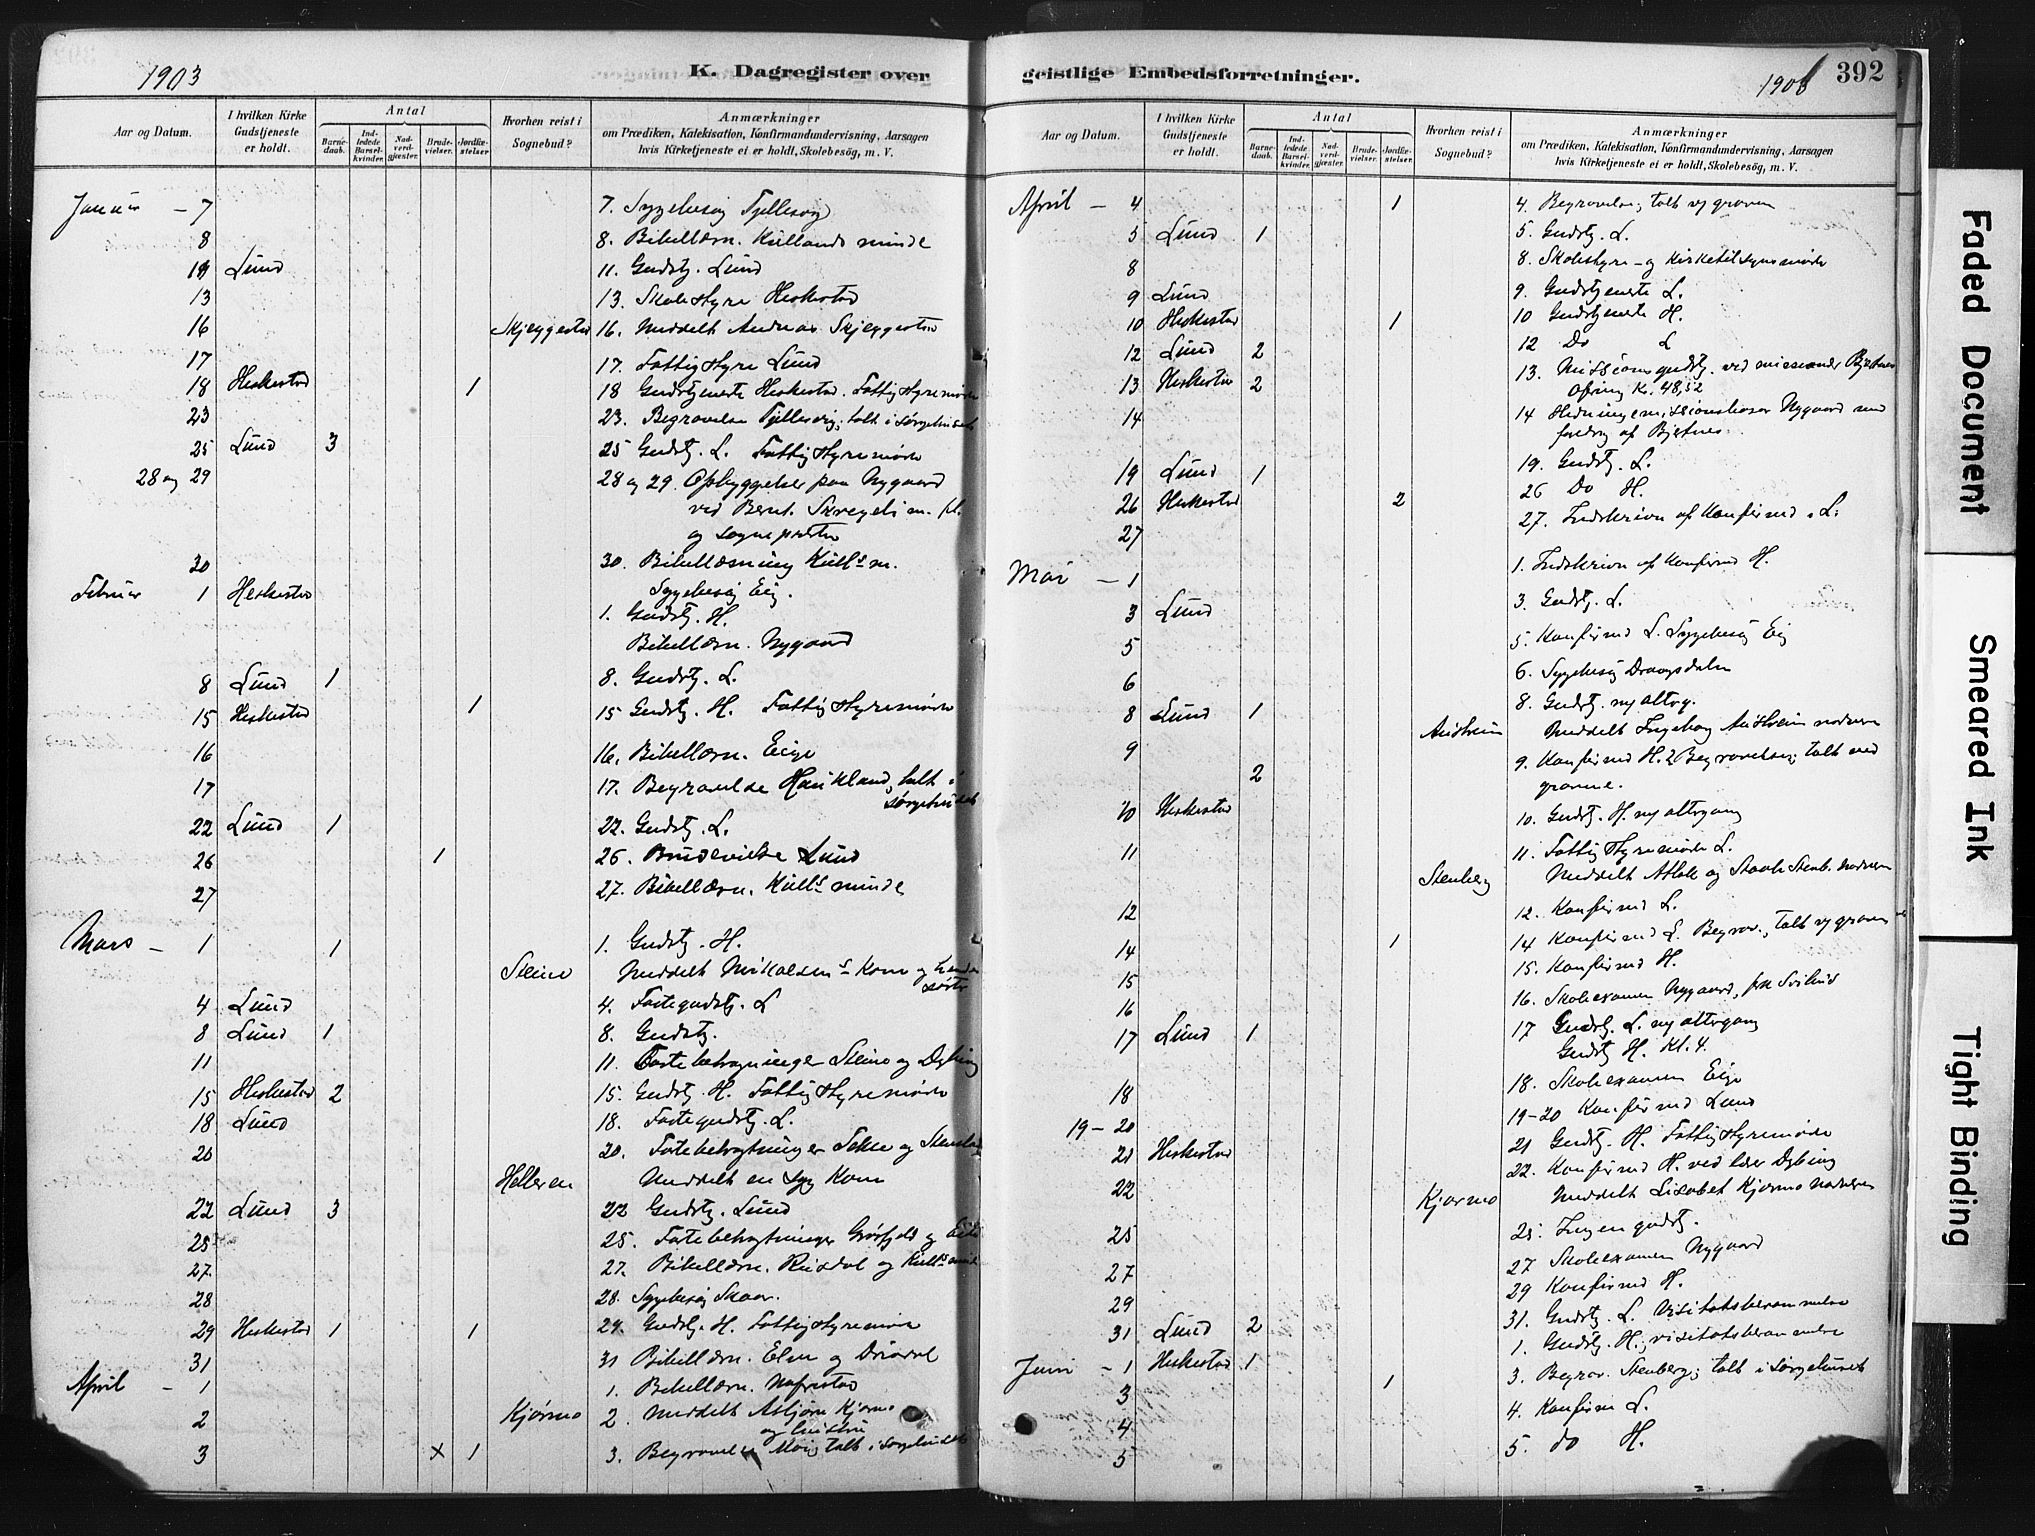 1903
K. Dagregister over
Aar og Datum.
I hvilken Kirke Gudstjeneste er holdt.
Antal
Barne-daab.
Ind-ledede Barsel-kvinder.
Nad-verd-gjæster.
Brude-vielser.
Jordfæ-stelser.
Hvorhen reist i Sognebud?
Anmærkninger
om Prædiken, Katekisation, Konfirmandundervisning, Aarsagen
hvis Kirketjeneste ei er holdt, Skolebesøg, m. V.
Januar – 7 7. Sygebesøg
8 8. Bibellæsn. Kullands minde
Lund 11. Gudstj. Lund
13 13. Skolestyre Heskestad
16 Skjeggestad 16. Meddelt Andreas Skjeggestad
17 17. Fattigstyre Lund
18 Heskestad 1 18 Gudstjeneste Heskestad. Fattigstyremøde
23 23. Begravelse talt i sørgehuset
25 Lund 3 25 Gudstj. L. Fattigstyremøde
28 og 29 28 og 29. Opbyggelser paa Nygaard
ved Bernt
og sognepresten
30 30. Bibellæsning Kulls m.
Sygebesøg Eig.
Februar 1 Heskestad 1. Gudstj. H.
Bibellæsn. Nygaard
8 Lund 1 8. Gudstj. L.
15 Heskestad 1 15 Gudstj. H. Fattigstyremøde
16 16. Bibellæsn. Eige
17 17. Begravelse Haukland, talt i
sørgehuset
22 Lund 1 22. Gudstj. L.
26 1 26. Brudevielse Lund
27 27. Bibellæsn. Kulls minde
Mars – 1 1 1. Gudstj. H.
Steine Meddelt Mikalsens Kone og
4 Lund 4. Fastegudstj. L
8 Lund 1 8. Gudstj.
11 11. Fastebetragtninger Steine og Dybing
15 Heskestad 2 15. Gudstj. H. Fattigstyremøde
18 Lund 18. Fastegudstj. L.
20 20. Fastebetragtninger og
Helleren Meddelt en syg Kone
22 Lund 3 22 Gudstj. Lund
25 25. Fastebetragtninger og
27. 27. Bibellæsn. Rusdal og Kulls minde
28 28. Sygebesøg Skaar.
29 Heskestad 1 1 29. Gudstj. H. Fattigstyremøde
31 31 Bibellæsn. og
April – 1 1. Bibellæsn.
2 Kjørmo 2. Meddelt Asbjørn Kjørmo
og hustru
3 x 1 3. Begravelse Moi, talt i sørgehuset
geistlige Embedsforretninger.
1903 392
Aar og Datum.
I hvilken Kirke Gudstjeneste er holdt.
Antal
Barne-daab.
Ind-ledede Barsel-kvinder.
Nad-verd-gjæster.
Brude-vielser.
Jordfæ-stelser.
Hvorhen reist i Sognebud?
Anmærkninger
om Prædiken, Katekisation, Konfirmandundervisning, Aarsagen
hvis Kirketjeneste ei er holdt, Skolebesøg, m. V.
April – 4 1 4. Begravelse; talt v graven
5 Lund 1 5. Gudstj. L.
8 8. Skolestyre- og Kirketilsynsmøde
9 Lund 9. Gudstjeneste L.
10 Heskestad 1 10 Gudstjeneste H.
12 Lund 2 12 Do L
13 Heskestad 2 13. Missionsgudstj. ved missionær Bjertnes
Ofring Kr. 48,52
14 14 Hedningemissionsbasar Nygaard med
foredrag af Bjertnes.
19 Lund 1 19. Gudstj. L.
26 Heskestad 2 26 Do H.
27 27. Indskrivn af Konfirmd i L.
Mai – 1 1. Indskrivn af Konfirmd H.
3 Lund 3. Gudstj. L.
5 5. Konfirmd L. Sygebesøg Eig
6 6. Sygebesøg Draagsdalen
8 Lund 1 8. Gudstj. m altrg.
Austrheim Meddelt Ingeborg Austrheim nadveren
9 2 9. Konfirmd H. 2 Begravelser; talt ved
gravene.
10 Heskestad 10. Gudstj. H. m altergang
11 11. Fattigstyremøde L.
Stenberg Meddelt Atlak og Stenb. nadveren
12 12. Konfirmd L.
14 1 14 Konfirmd L. Begrav., talt v graven
15 15. Konfirmd H.
16 16. Skolexamen Nygaard,
17 Lund 1 17 Gudstj. L. m altergang
Gudstj H. Kl. 4.
18 18. Skolexamen Eige
19–20 19–20 Konfirmd Lund
21 Heskestad 21 Gudstj. H. Fattigstyremøde
22 22. Konfirmd H. ved lærer Dybing
Kjørmo Meddelt Lisabet Kjørmo nadveren
25 25. Ingen gudstj.
27 27 Skolexamen Nygaard
29 29 Konfirmd H.
31 Lund 2 31. Gudstj. L.
Juni – 1 Heskestad 1 1. Gudstj. H.;
3 1 3. Begrav. Stenberg; talt i sørgehuset
4 4. Konfirm L.
5 5. do H.
Faded Document
Smeared Ink
Tight Binding